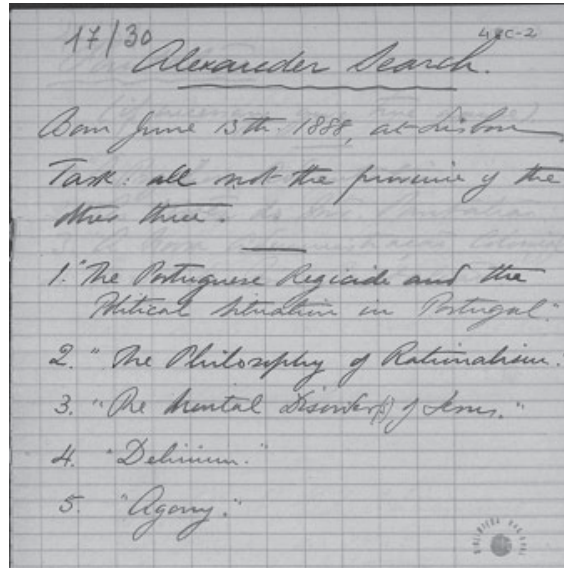 17/30
48C-2
Alexander Search.
Born June 13th. 1888, at Lisbon
Task: all not the province of the
other three.
1. "The Portuguese Regicide and the
Political Situation in Portugal."
2. "The Philosophy of Rationalism.
3. "The Mental Disorder(s) of Jesus."
4. "Delirium."
5. "Agony."